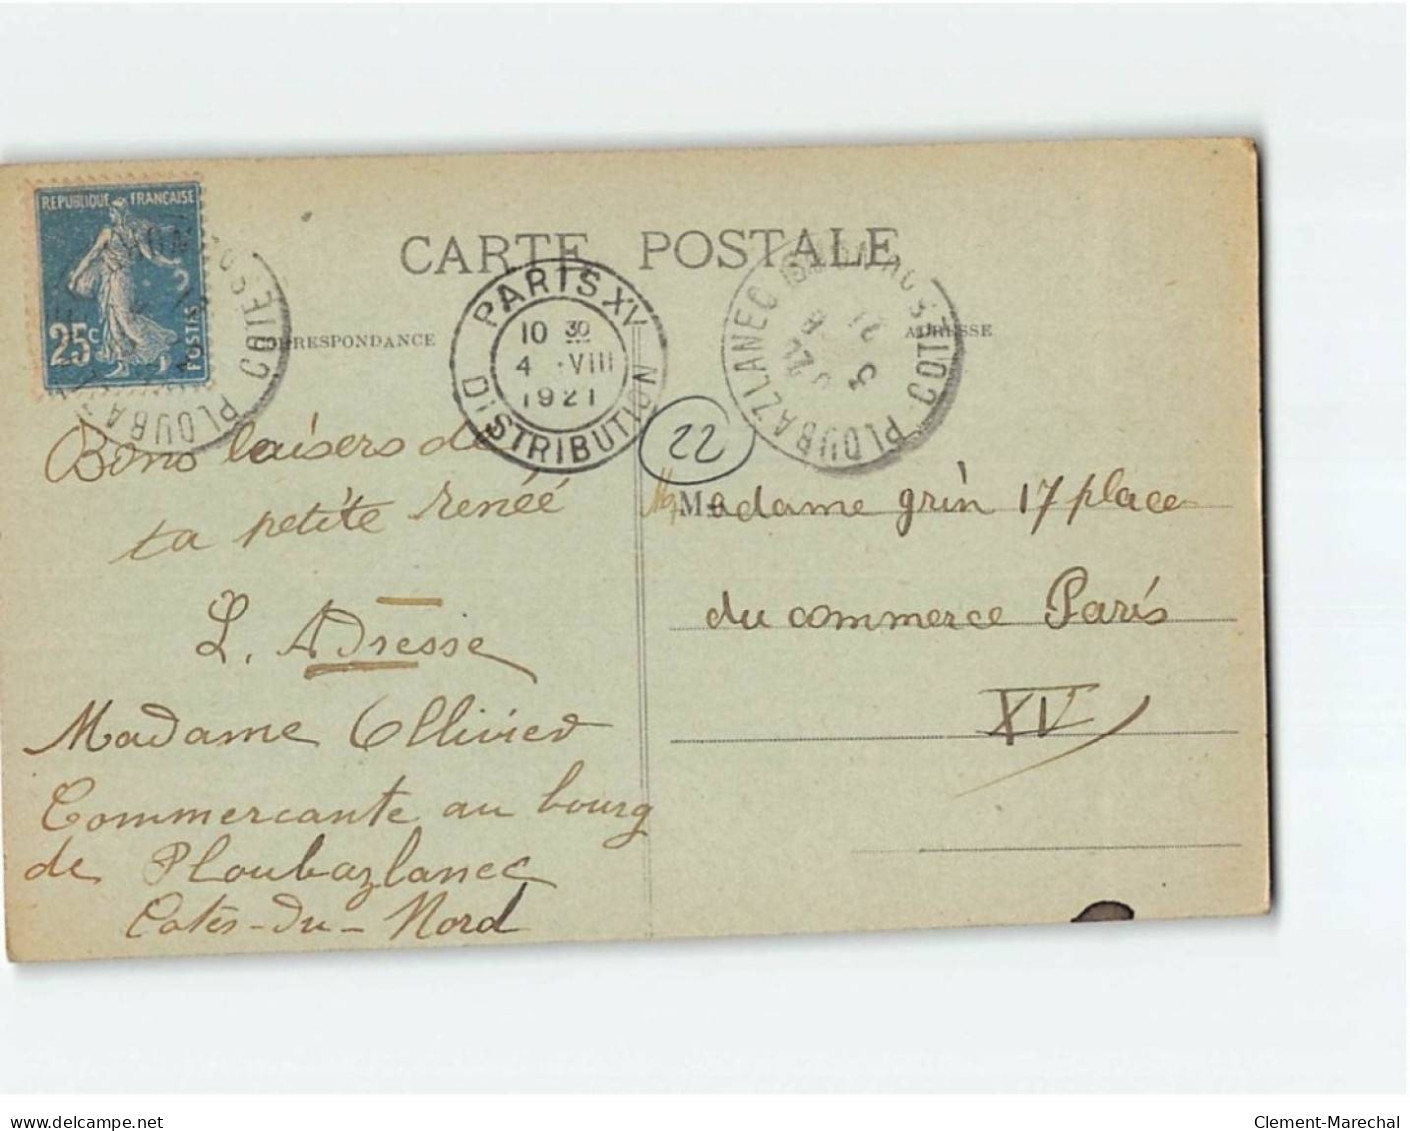 REPUBLIQUE FRANÇAISE
25c
POSTES
CARTE POSTALE
PARIS XV
10 30
4 · VIII
1921
DISTRIBUTION
PLOUBAZLANEC
COTES DU NORD
3
8
21
CORRESPONDANCE
ADRESSE
22
Bons baisers de
ta petite renée
L. ADresse
Madame Ollivier
Commercante au bourg
de Ploubazlanec
Cotes-du-Nord
Madame grin 17 place
du commerce Paris
XV
delcampe.net
Clement-Marechal